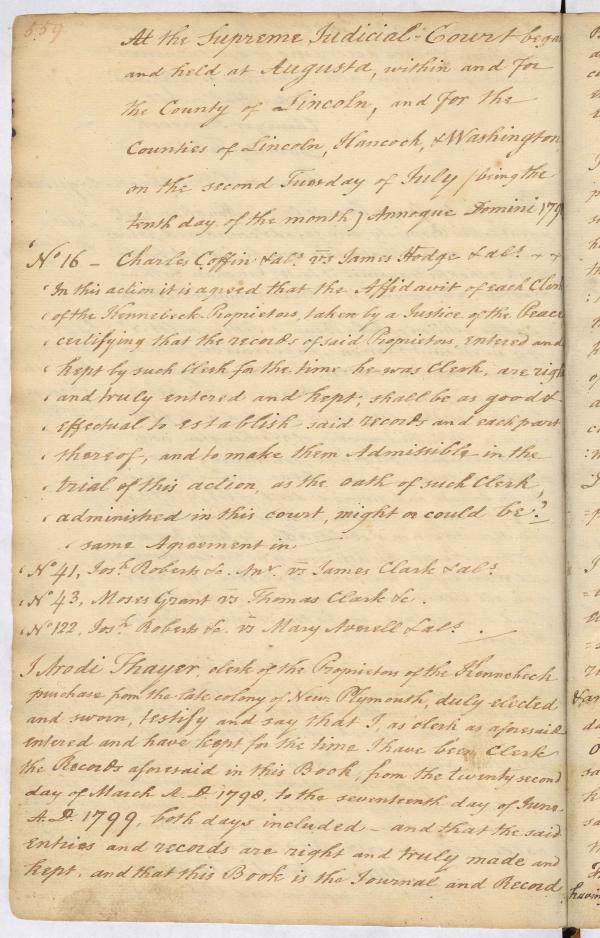 559
At the Supreme Judicial Court bega
and held at Augusta, within and for
the County of Lincoln, and for the
Counties of Lincoln, Hancock, & Washington
on the second Tuesday of July (being the
tenth day of the month) Annoque Domini 179
"No 16 – Charles Coffin & als. vs James Hodge & als.
"In this action it is agreed that the Affidavit of each Clerk
"of the Kennebeck Proprietors, taken by a Justice of the Peace
"certifying that the records of said Proprietors, entered and
"kept by such Clerk for the time he was Clerk, are righ
"and truly entered and kept; shall be as good &
"effectual to establish said records and each part
"thereof, and to make them Admissible in the
"trial of this action, as the oath of such Clerk,
"administred in this court, might or could be."
"same Agreement in
"No 41, Josh. Roberts &c. vs James Clark & als.
"No 43, Moses Grant vs Thomas Clark &c.
"No 122, Josh. Roberts &c. vs Mary Averell & als.
I Arodi Thayer, clerk of the Proprietors of the Kennebeck
purchase from the late colony of New Plymouth, duly elected
and sworn, testify and say that I, as clerk as aforesaid
entered and have kept for the time I have been Clerk
the Records aforesaid in this Book, from the twenty second
day of March A. D. 1798, to the seventeenth day of June
A.D. 1799, both days included – and that the said
Entries and records are right and truly made and
kept. and that this Book is the Journal and Record